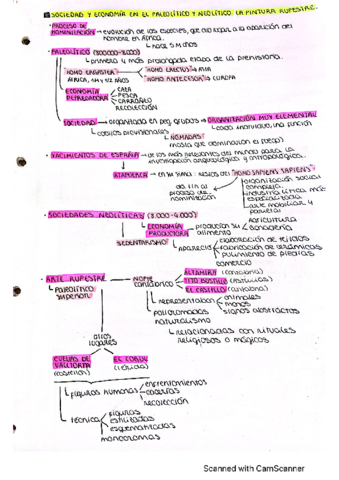 SOCIEDAD Y ECONOMÍA EN EL PALEOLÍTICO Y NEOLÍTICO. LA PINTURA RUPESTRE.
· PROCESO DE HOMINIZACIÓN → evolución de las especies, que dio lugar a la aparición del hombre en África.
↳ hace 5 M años
· PALEOLÍTICO (800000-8000)
↳ primera y más prolongada etapa de la prehistoria.
"HOMO ERGASTER"
"HOMO ERECTUS" → ASIA
ÁFRICA, 4M y 1/2 AÑOS
"HOMO ANTECESSOR" → EUROPA
ECONOMÍA DEPREDADORA
CAZA
PESCA
CARROÑEO
RECOLECCIÓN
SOCIEDAD → organizada en peq. grupos → ORGANIZACIÓN MUY ELEMENTAL
↳ cuevas provisionales
↳ cada individuo, una función
↳ NÓMADAS
(hasta que dominaron el fuego)
· YACIMIENTOS DE ESPAÑA → de los más relevantes del mundo para la investigación arqueológica y antropológica.
ATAPUERCA → en su sima: restos del "HOMO SAPIENS SAPIENS"
da fin al proceso de hominización
organización social compleja
industria lítica más especializada
arte mobiliar y parietal
· SOCIEDADES NEOLÍTICAS (8.000-4.000)
↳ ECONOMÍA PRODUCTORA → producían su alimento
agricultura
ganadería
SEDENTARISMO
↳ aparece
elaboración de tejidos
fabricación de cerámicas
pulimento de piedras
comercio
· ARTE RUPESTRE
↳ PALEOLÍTICO SUPERIOR
NORTE CANTÁBRICO
ALTAMIRA (Cantabria)
TITO BUSTILLO (Asturias)
EL CASTILLO (Cantabria)
↳ representaban
animales
manos
signos abstractos
policromados
naturalismo
↳ relacionadas con rituales religiosos o mágicos
otros lugares
CUEVAS DE VALLTORTA (Castellón)
EL COGUL (Lérida)
↳ figuras humanas
enfrentamientos
cacerías
recolección
↳ técnica
figuras estilizadas
esquematizadas
monocromas
Scanned with CamScanner